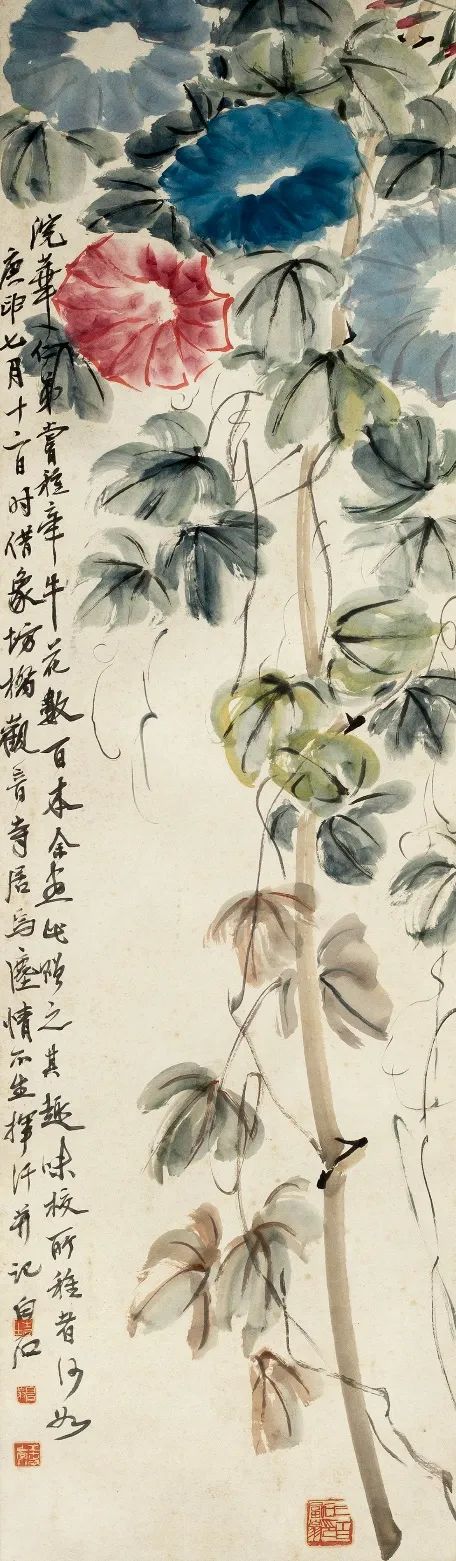 畹華仁弟嘗種牽牛花數百本余畫此贈之其趣味校所種者何如
庚申七月十二日时借象坊橋觀音寺居焉塵情不生揮汗并記白石